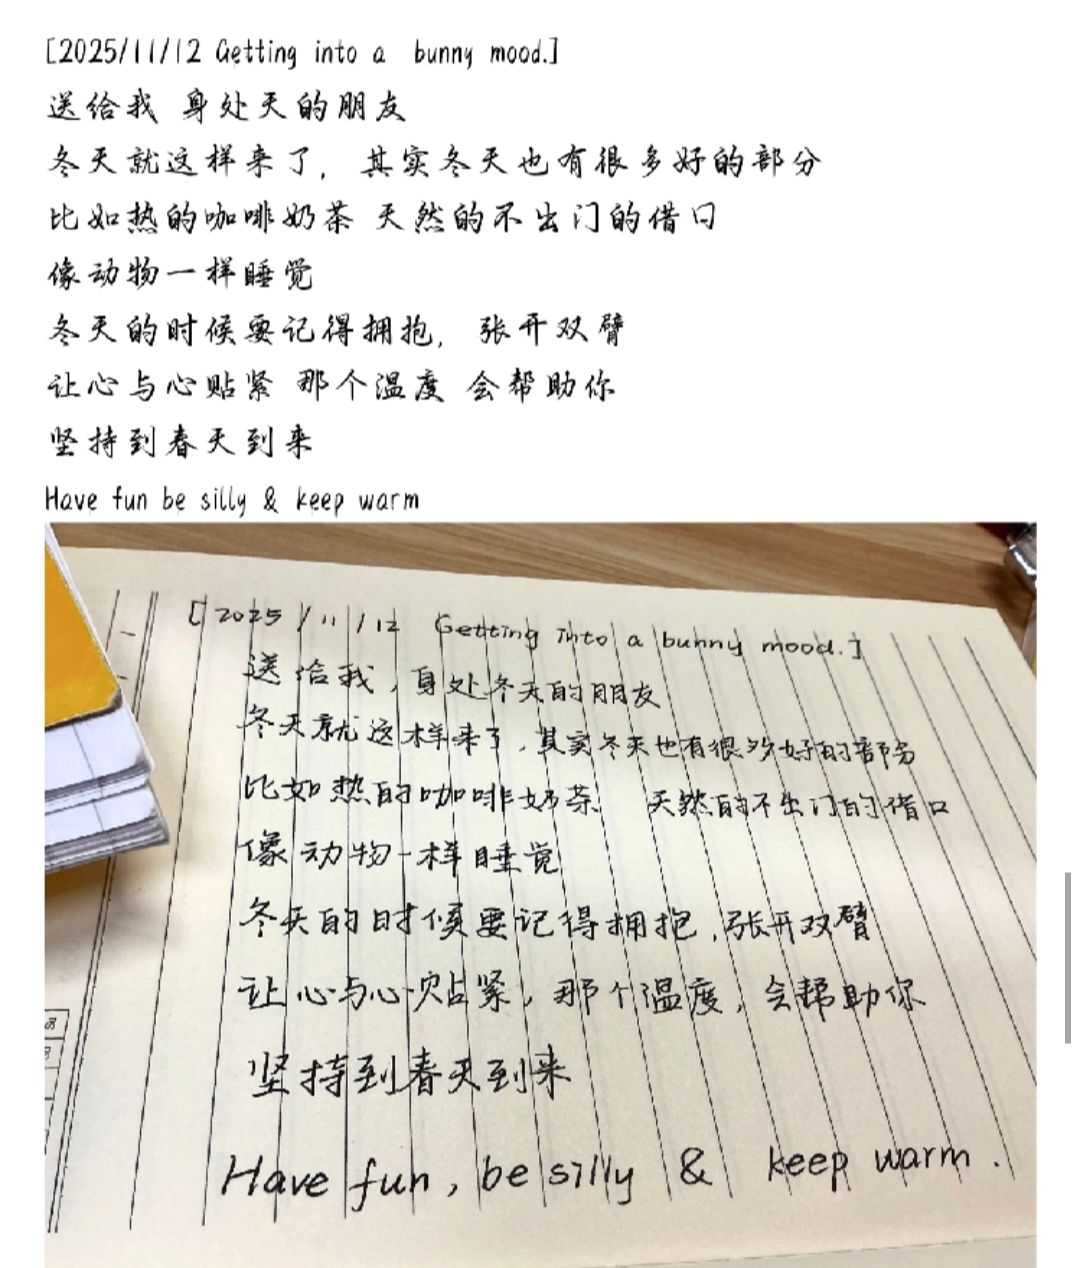 [2025/11/12 Getting into a bunny mood.]
送给我 身处天的朋友
冬天就这样来了, 其实冬天也有很多好的部分
比如热的咖啡奶茶 天然的不出门的借口
像动物一样睡觉
冬天的时候要记得拥抱, 张开双臂
让心与心贴紧 那个温度 会帮助你
坚持到春天到来
Have fun be silly & keep warm
[2025/11/12 Getting into a bunny mood.]
送给我,身处冬天的朋友
冬天就这样来了,其实冬天也有很多好的部分
比如热的咖啡奶茶 天然的不出门的借口
像动物一样睡觉
冬天的时候要记得拥抱,张开双臂
让心与心贴紧,那个温度,会帮助你
坚持到春天到来
Have fun, be silly & keep warm.